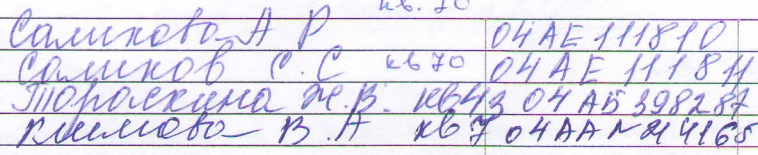 кв. 70
Салихова А Р 04АЕ111810
Салихов С. С кв 70 04АЕ 111811
Тораскина Н.В. кв43 04АБ 398287
Климова В. А кв 7 04АА №